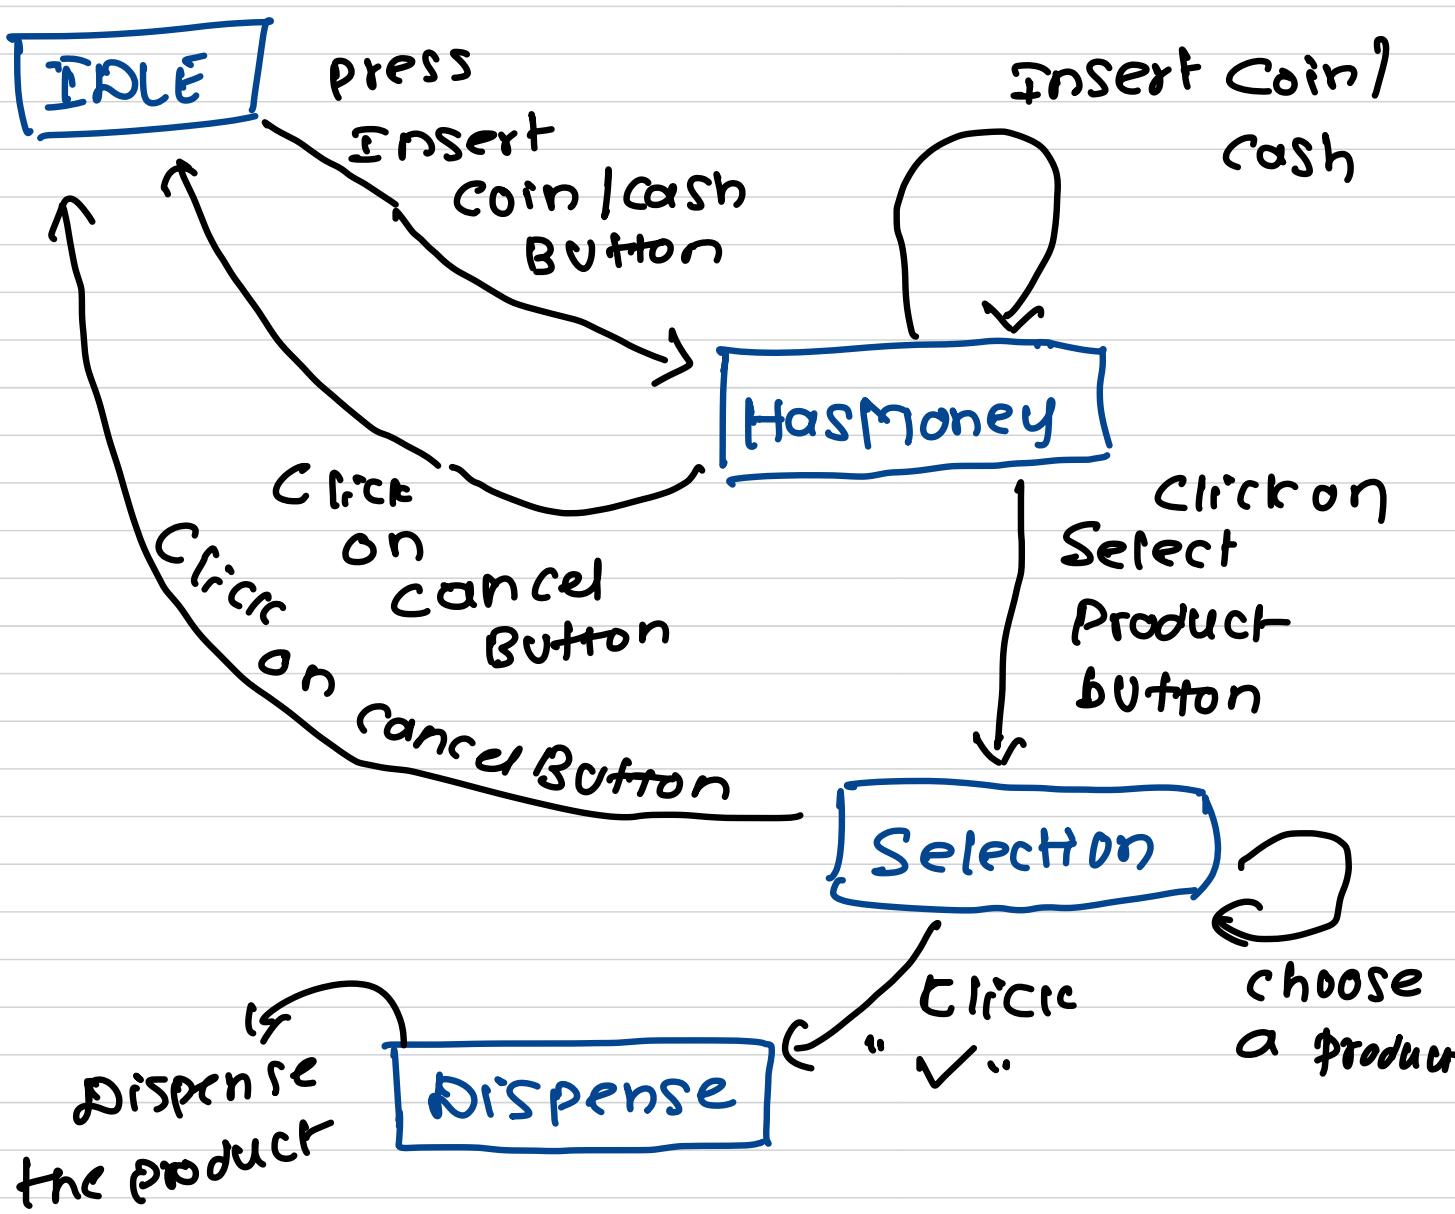 IDLE
press
Insert
coin/cash
Button
Insert Coin/
cash
HasMoney
Click
on
cancel
Button
Click on
Select
Product
button
Click on cancel Button
Selection
choose
a product
Click
"✓"
Dispense
Dispense
the product